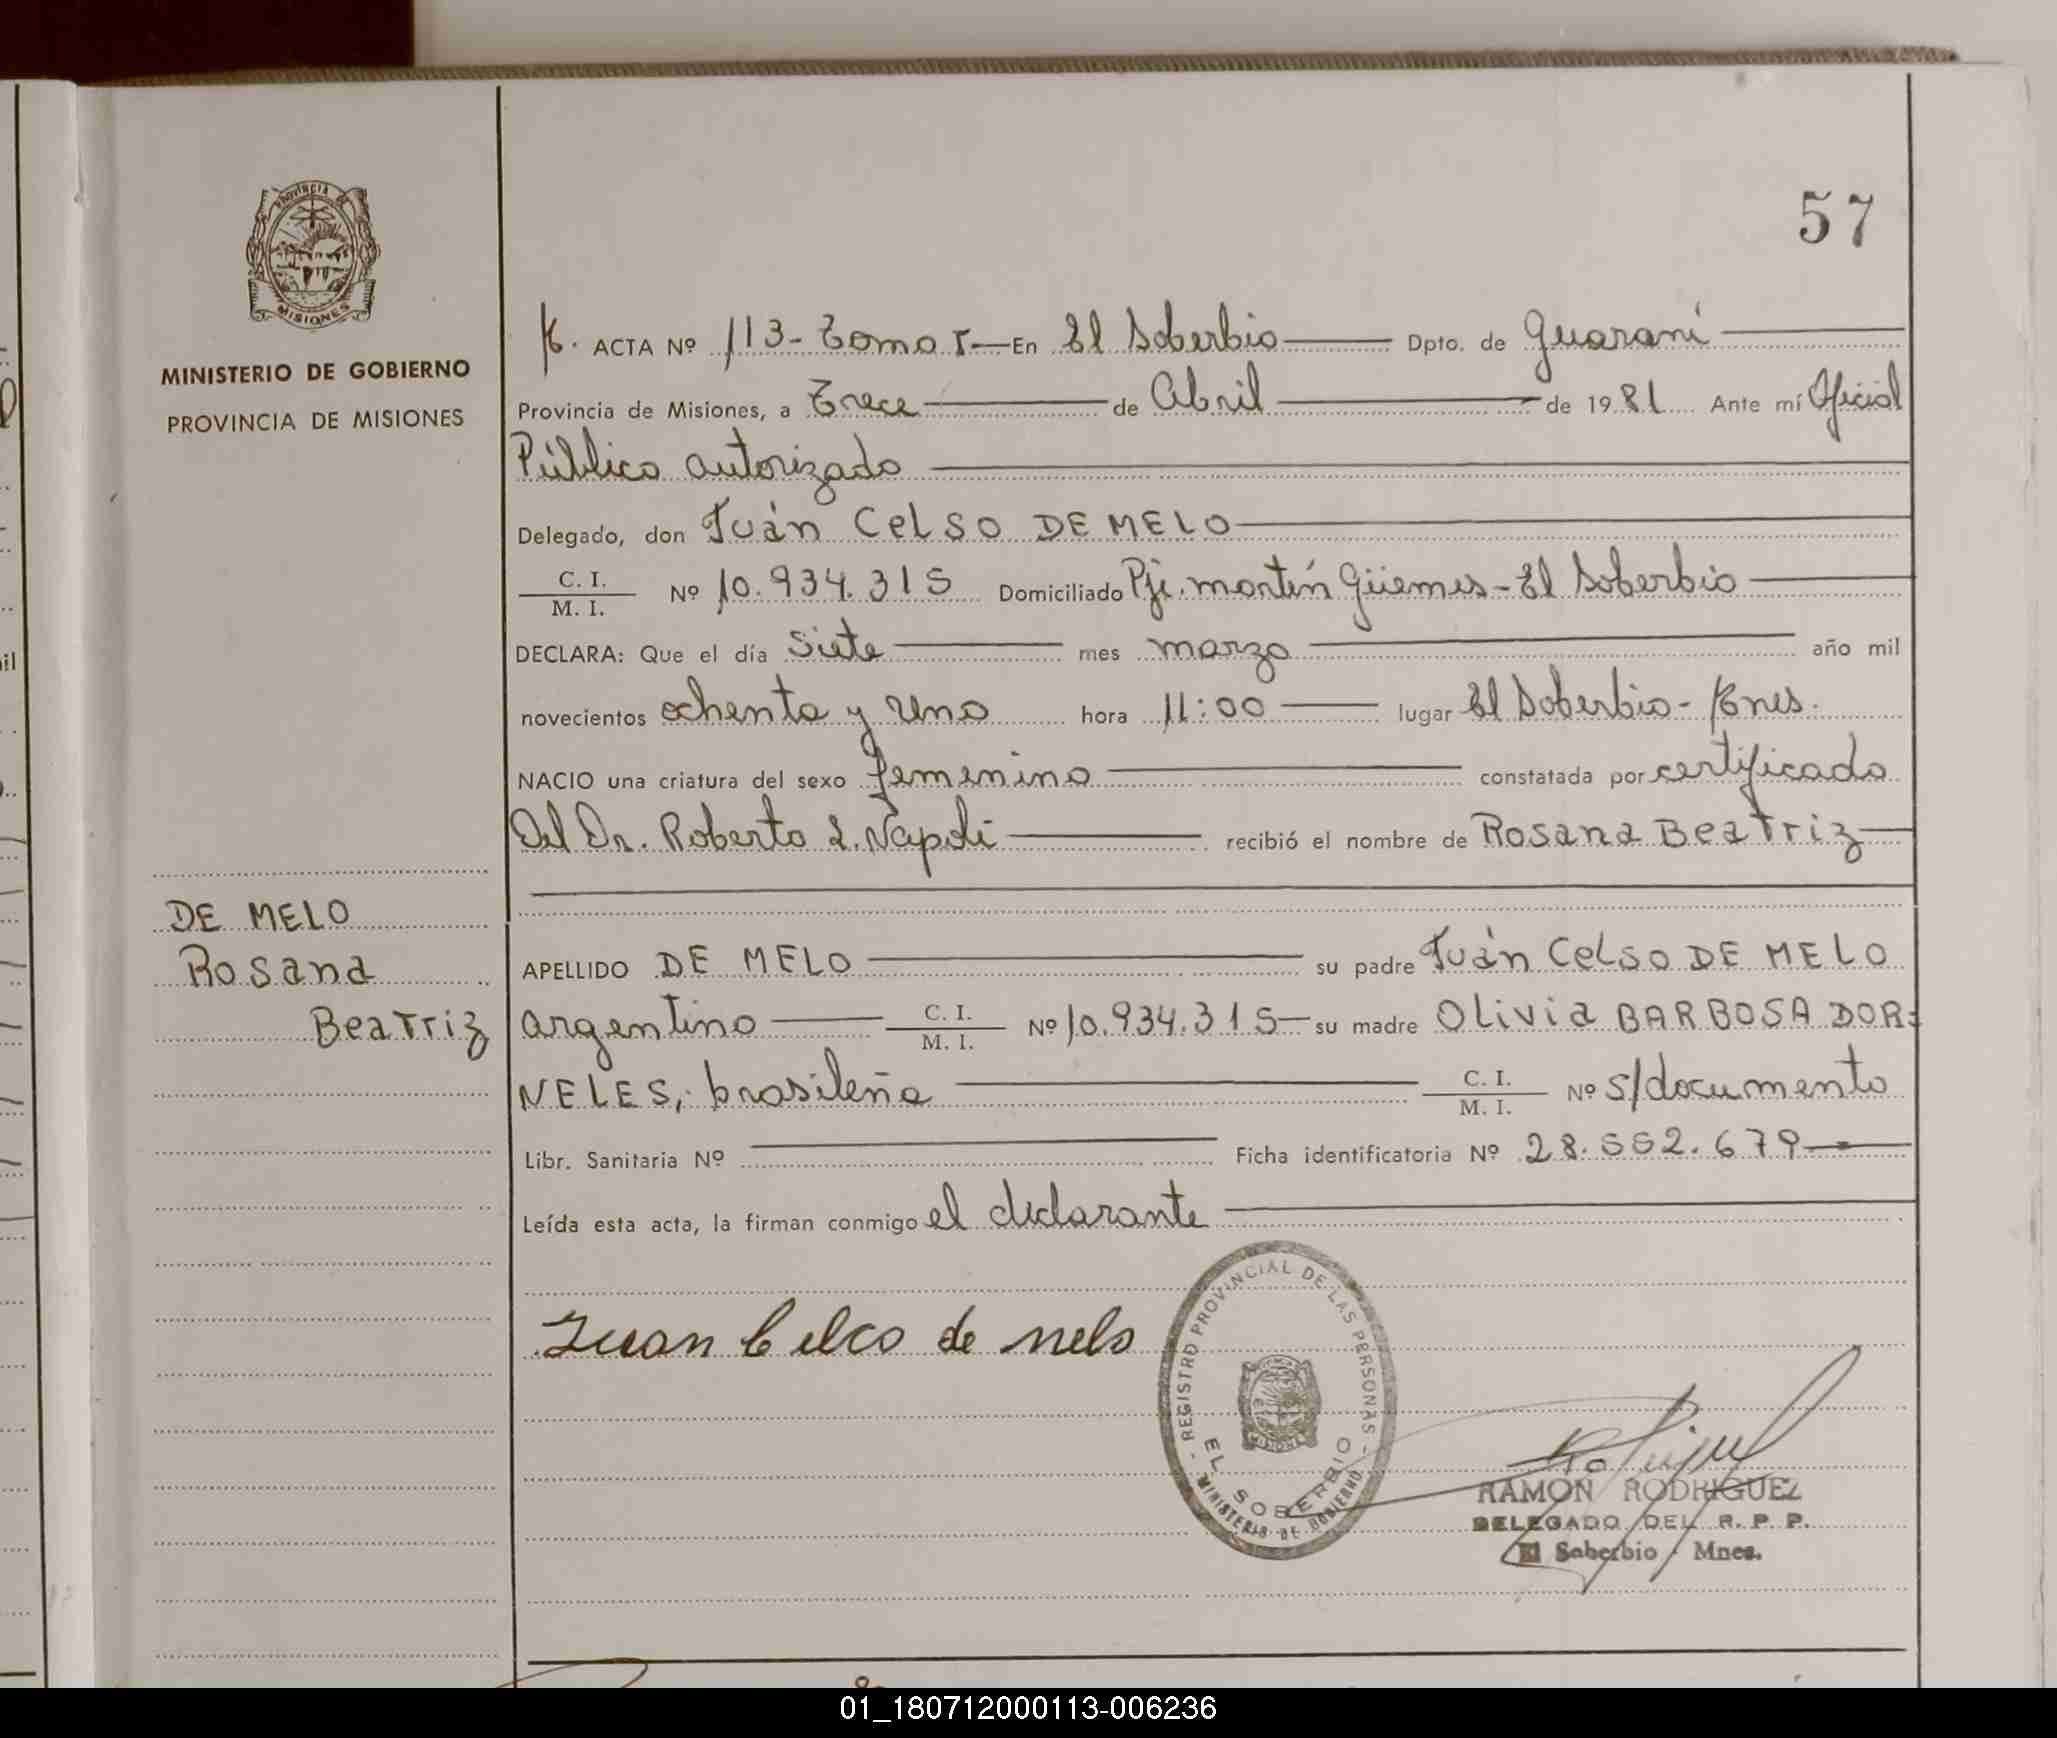 57
MINISTERIO DE GOBIERNO
PROVINCIA DE MISIONES
ACTA Nº 113- Tomo I — En El Soberbio — Dpto. de Guaraní
Provincia de Misiones, a Trece — de Abril — de 1981 Ante mí Oficial
Público autorizado
Delegado, don Juán Celso DE MELO
C. I.
M. I. Nº 10.934.315 Domiciliado Pje. Martín Güemes - El Soberbio
DECLARA: Que el día siete — mes marzo — año mil
novecientos ochenta y uno hora 11:00 — lugar El Soberbio - Mnes.
NACIO una criatura del sexo femenino — constatada por certificado
Del Dr. Roberto L. Napoli — recibió el nombre de Rosana Beatriz
DE MELO
Rosana
Beatriz
APELLIDO DE MELO — su padre Juán Celso DE MELO
argentino — C. I.
M. I. Nº 10.934.315 — su madre Olivia BARBOSA DOR=
NELES, brasileña — C. I.
M. I. Nº s/documento
Libr. Sanitaria Nº — Ficha identificatoria Nº 28.552.679 —
Leída esta acta, la firman conmigo el declarante
Juan Celco de melo
REGISTRO PROVINCIAL DE LAS PERSONAS
MISIONES
EL SOBERBIO
MINISTERIO DE GOBIERNO
RAMON RODRIGUEZ
DELEGADO DEL R. P. P.
El Soberbio - Mnes.
01_180712000113-006236